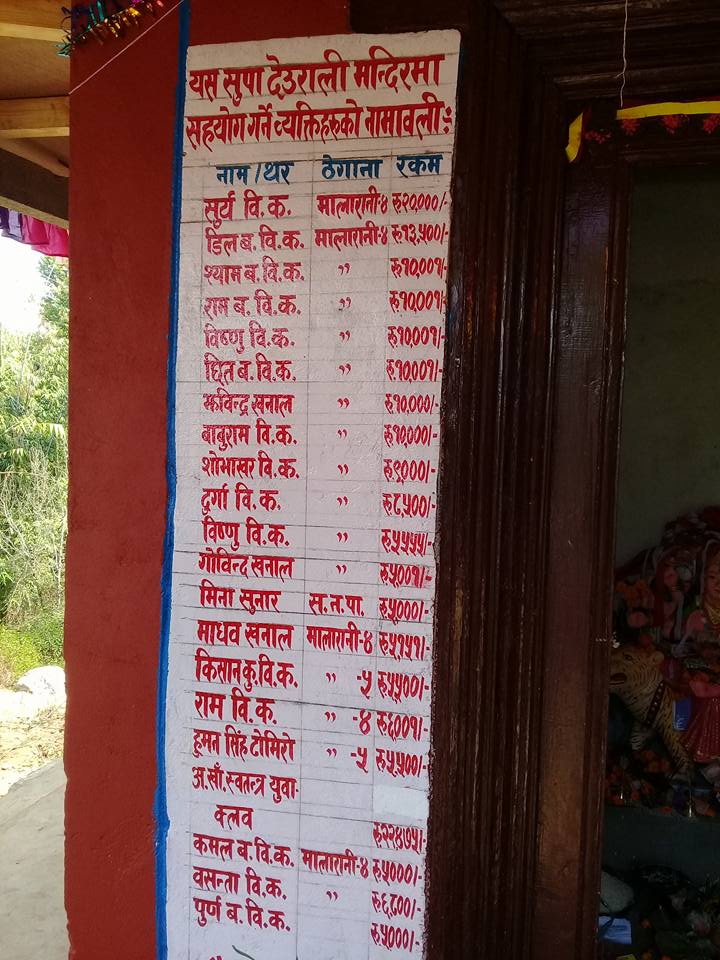 यस सुपा देउराली मन्दिरमा
सहयोग गर्ने व्यक्तिहरुको नामावली:
नाम/थर ठेगाना रकम
सुर्य वि.क. मालारानी-४ रु२०,०००/-
डिल ब. वि.क. मालारानी-४ रु१३,५००/-
श्याम ब. वि.क. ,, रु१०,००१/-
राम ब. वि.क. ,, रु१०,००१/-
विष्णु वि.क. ,, रु१०,००१/-
छित ब. वि.क. ,, रु१०,००१/-
झविन्द्र खनाल ,, रु१०,०००/-
बाबुराम वि.क. ,, रु१०,०००/-
शोभाखर वि.क. ,, रु९०००/-
दुर्गा वि.क. ,, रु८,५००/-
विष्णु वि.क. ,, रु५५५५/-
गोविन्द खनाल ,, रु५,००१/-
मिना सुनार स.न.पा. रु५०००/-
माधव खनाल मालारानी-४ रु५१५१/-
किसान कु.वि.क. ,, -५ रु५५००/-
राम वि.क. ,, -४ रु६,००१/-
हुमत सिंह टोमिरो ,, -५ रु५५००/-
अ.खाँ.स्वतन्त्र युवा
क्लव रु२२४७५/-
कमल ब. वि.क. मालारानी-४ रु५०००/-
वसन्ता वि.क. ,, रु६८००/-
पुर्ण ब. वि.क. रु५०००/-